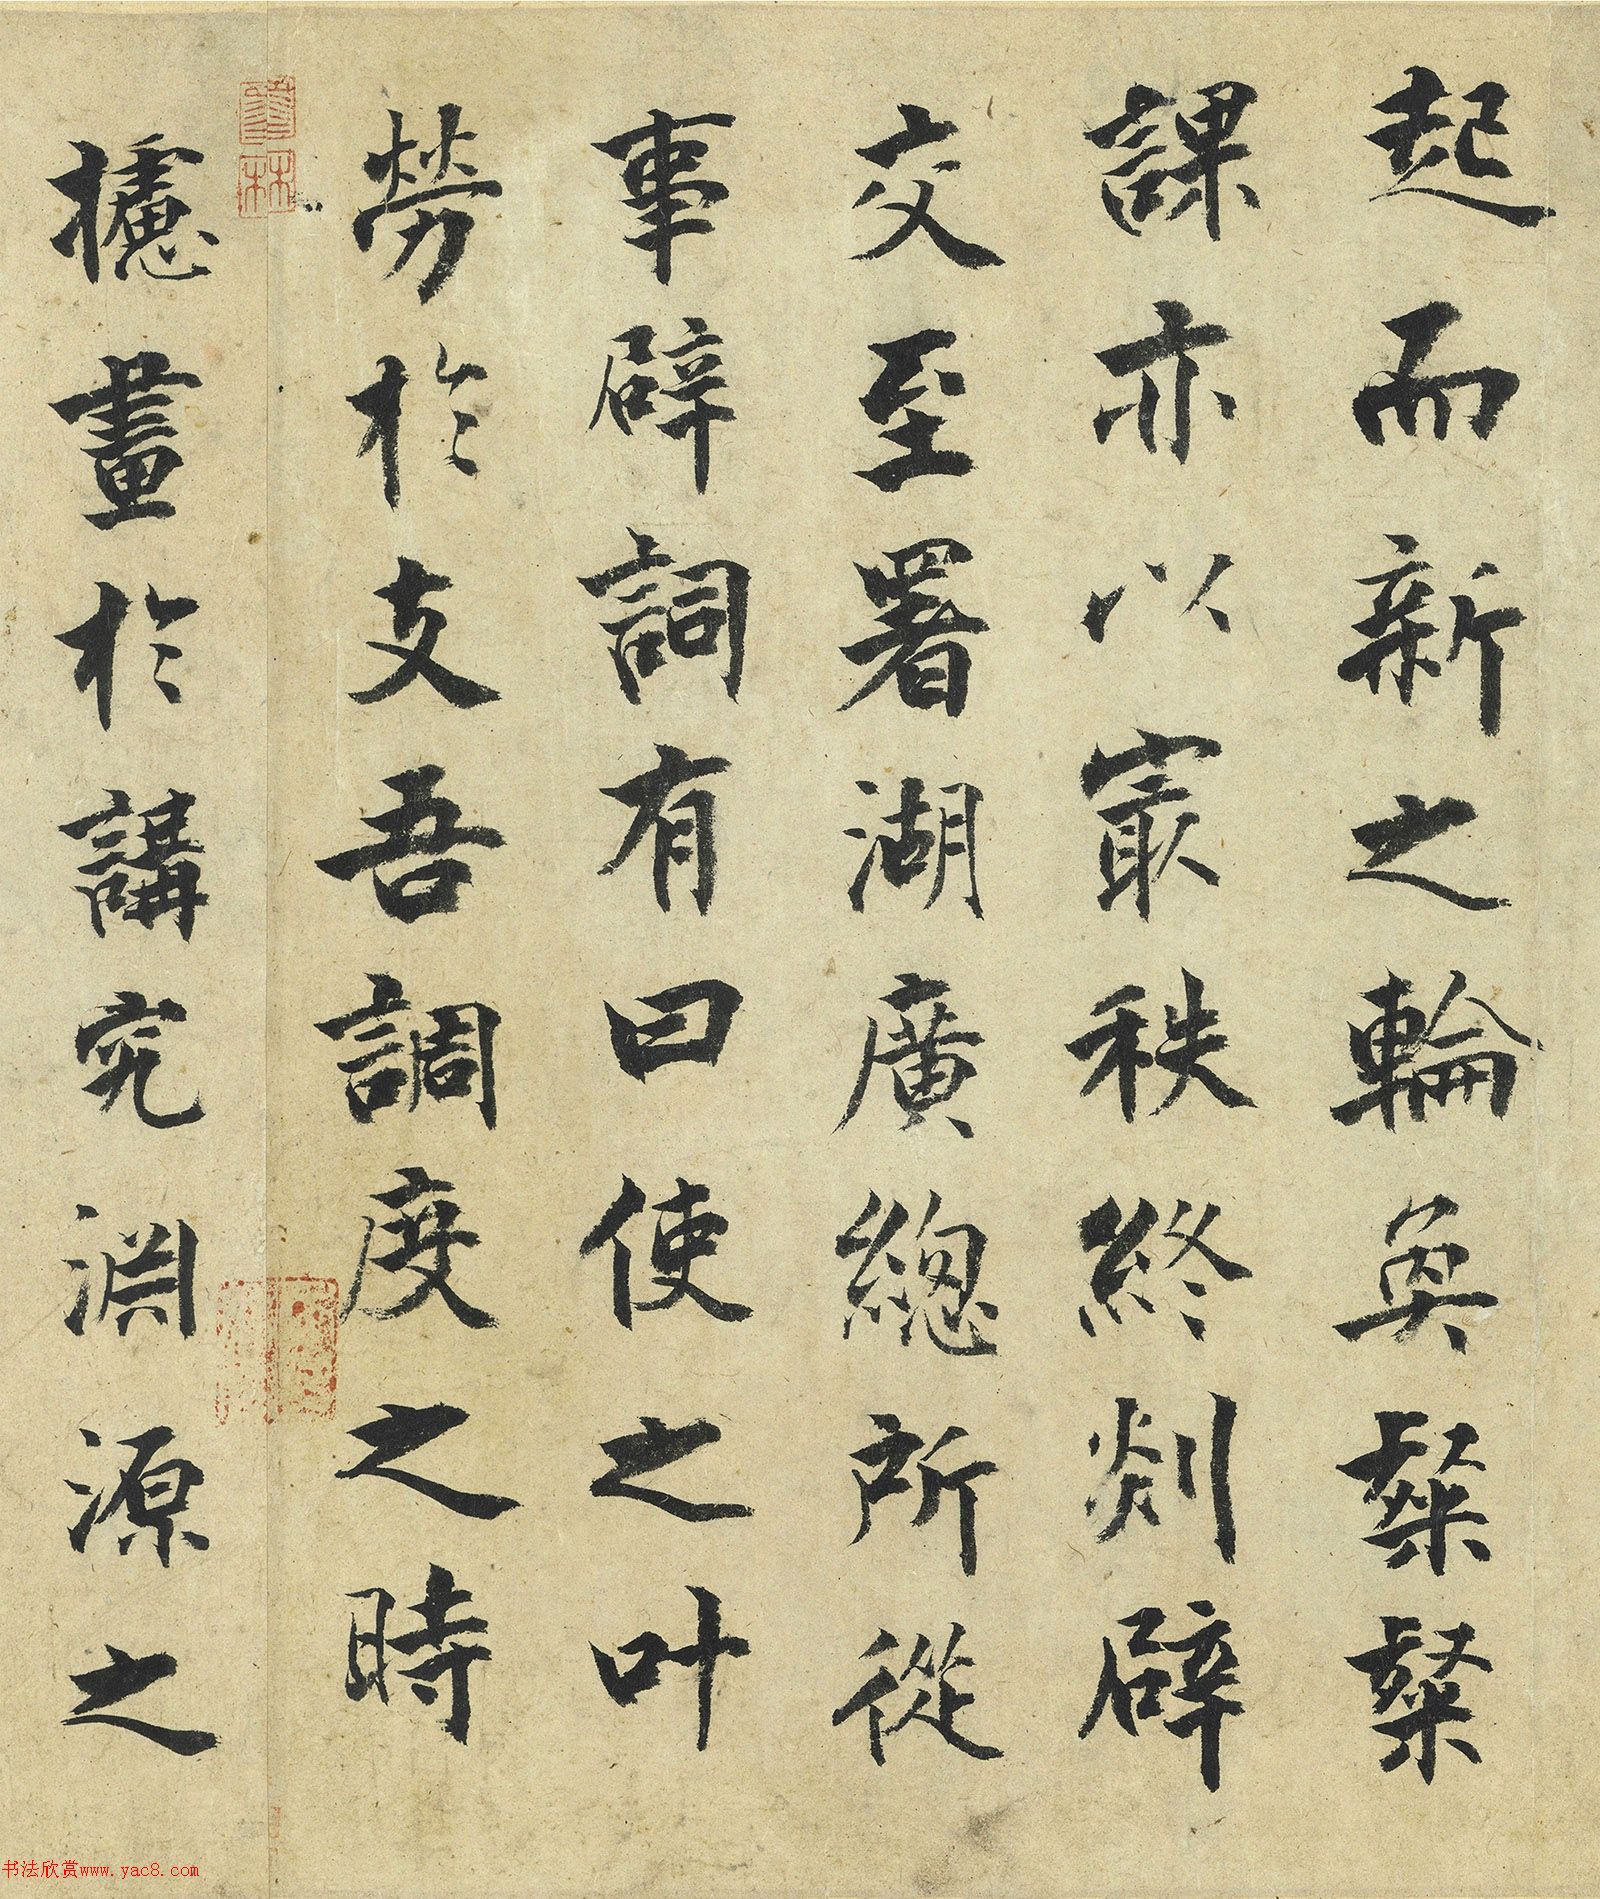 起而新之輪奐粲粲
課亦以㝡秩終剡辟
交至署湖廣總所從
事辟詞有曰使之叶
勞於支吾調度之時
攄畫於講究淵源之
书法欣赏www.yac8.com